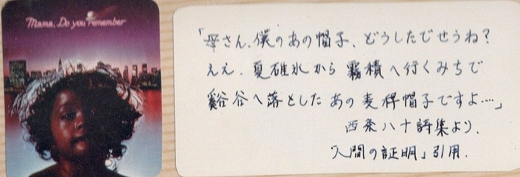 Mama, Do you remember
「母さん、僕のあの帽子、どうしたでせうね?
ええ、夏碓氷から霧積へ行くみちで
谿谷へ落としたあの麦稈帽子ですよ…」
西条八十詩集より、
「人間の証明」引用.